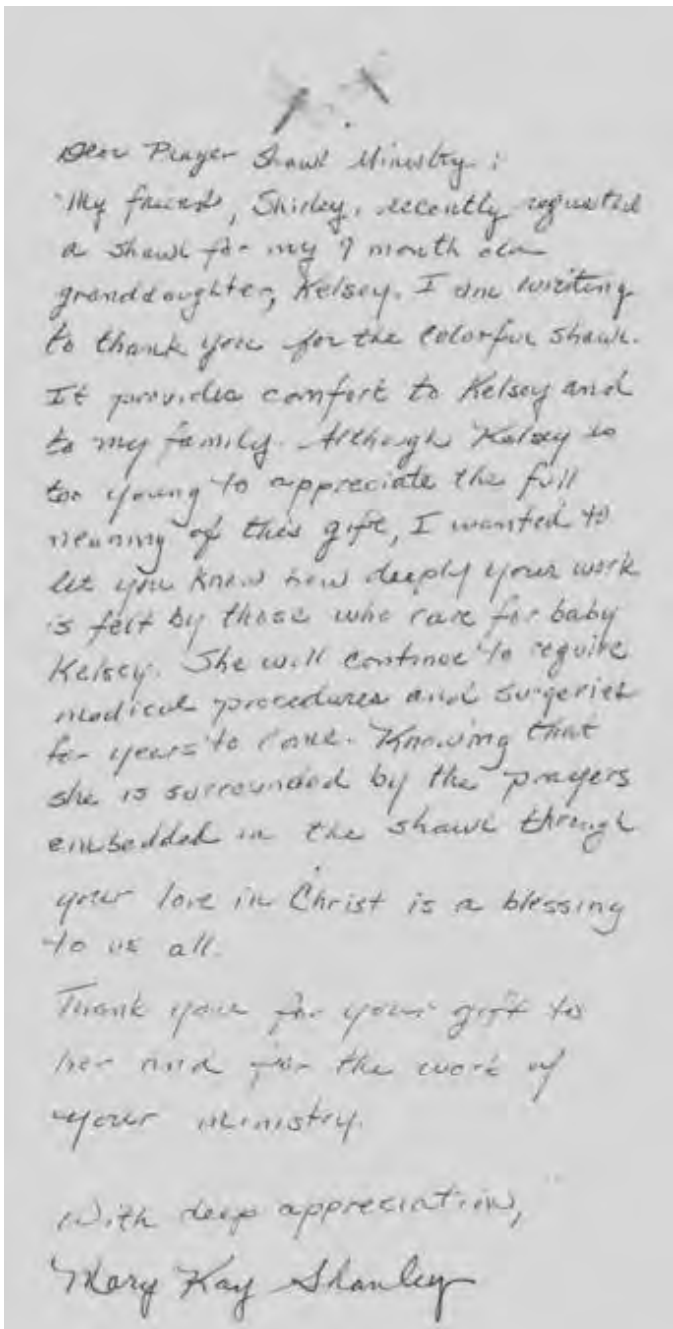 Dear Prayer Shawl Ministry:
My friend, Shirley, recently requested
a shawl for my 9 month old
granddaughter, Kelsey. I am writing
to thank you for the colorful shawl.
It provides comfort to Kelsey and
to my family. Although Kelsey is
too young to appreciate the full
meaning of this gift, I wanted to
let you know how deeply your work
is felt by those who care for baby
Kelsey. She will continue to require
medical procedures and surgeries
for years to come. Knowing that
she is surrounded by the prayers
embedded in the shawl through
your love in Christ is a blessing
to us all.
Thank you for your gift to
her and for the work of
your ministry.
With deep appreciation,
Mary Kay Shanley